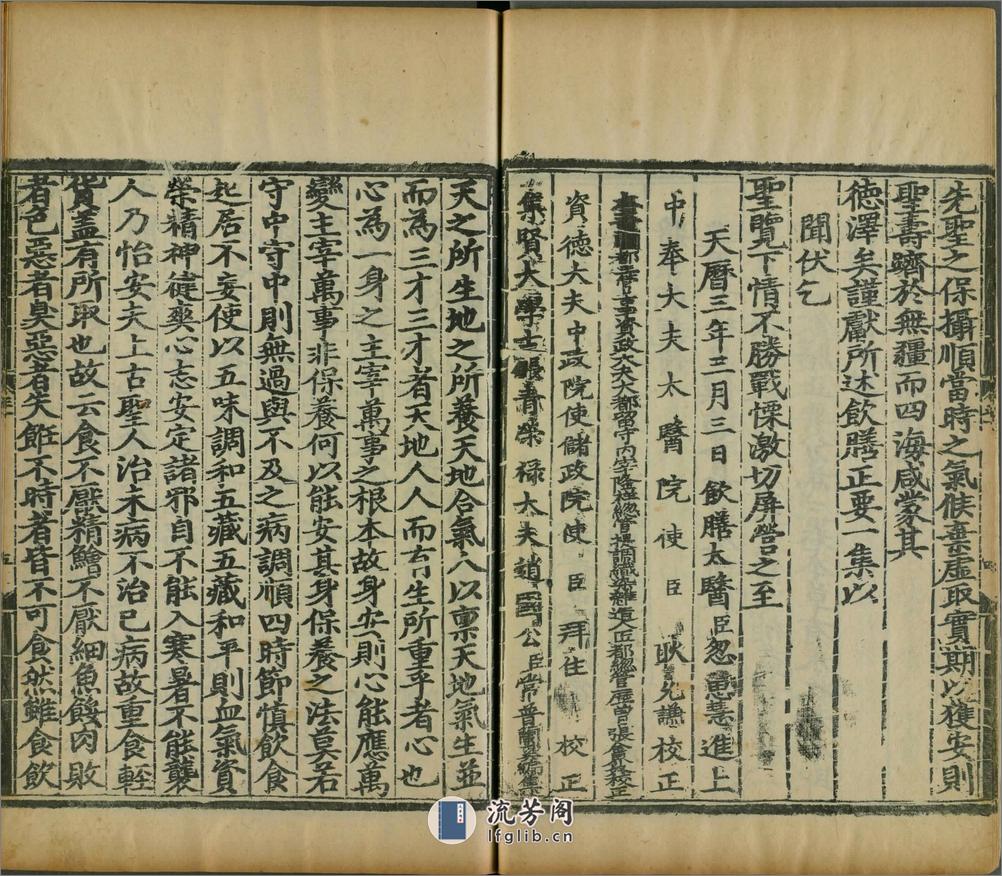 先聖之保攝順當時之氣候棄虛取實期以獲安則
聖壽躋於無疆而四海咸蒙其
德澤矣謹獻所述飲膳正要一集以
聞伏乞
聖覽下情不勝戰慄激切屏營之至
天曆三年三月三日飲膳太醫臣忽思慧進上
中奉大夫太醫院使臣耿允謙校正
資政大夫大都留守內宰隆祥總管提調織染雜造人匠都總管府事張金界奴校正
資德大夫中政院使儲政院使臣拜住校正
集賢大學士銀青榮祿大夫趙國公臣常普蘭奚編集
天之所生地之所養天地合氣人以稟天地氣生並
而為三才三才者天地人人而有生所重乎者心也
心為一身之主宰萬事之根本故身安則心能應萬
變主宰萬事非保養何以能安其身保養之法莫若
守中守中則無過與不及之病調順四時節慎飲食
起居不妄使以五味調和五藏五藏和平則血氣資
榮精神健爽心志安定諸邪自不能入寒暑不能襲
人乃怡安夫上古聖人治未病不治已病故重食輕
貨蓋有所取也故云食不厭精鱠不厭細魚餒肉敗
者色惡者臭惡者失飪不時者皆不可食然雖食飲
五
流芳阁
lfglib.cn